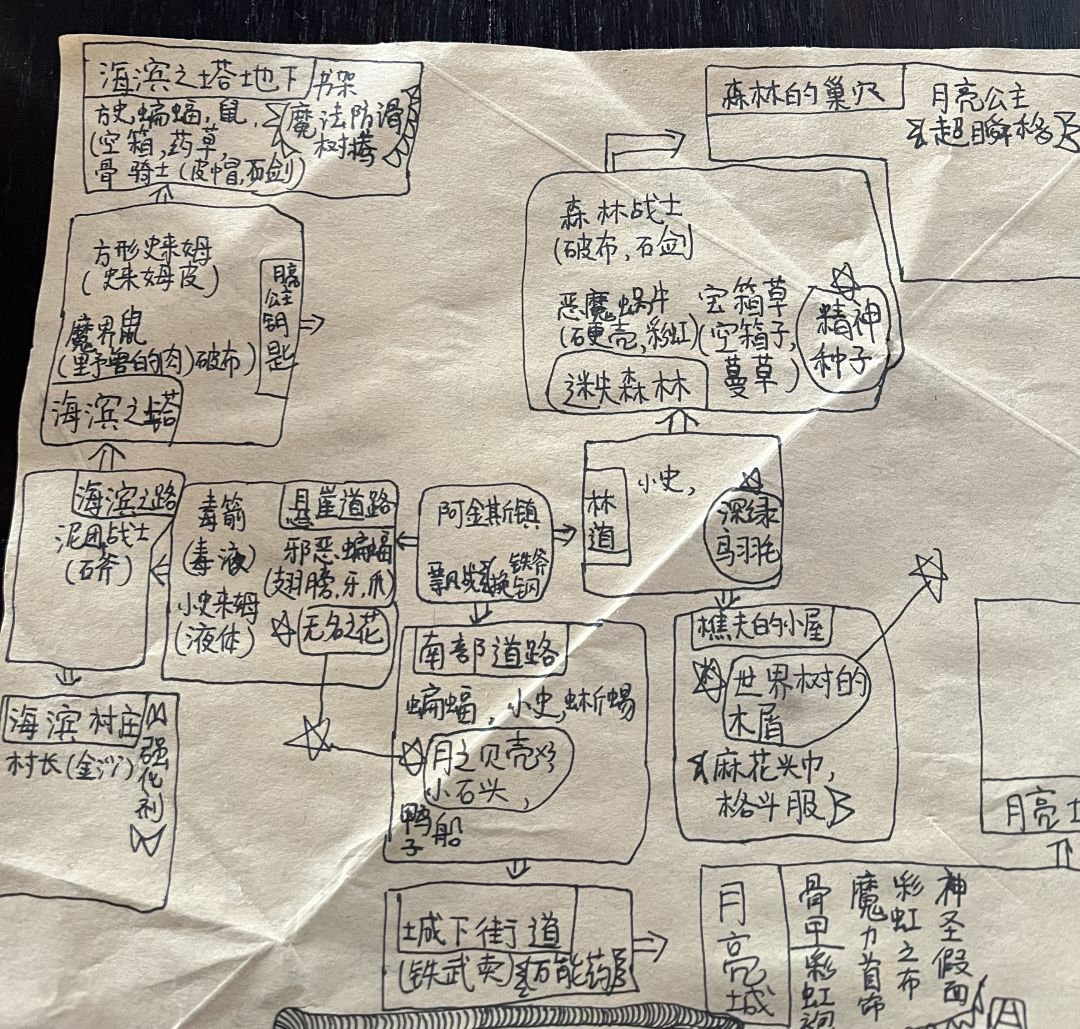 海滨之塔地下
书架
方史,蝙蝠,鼠,
(空箱,药草,
骨骑士(皮帽,石剑)
魔法防滑
树搽
方形史来姆
(史来姆皮)
魔界鼠
(野兽的肉)破布)
月亮公主钥匙
海滨之塔
海滨之路
泥团战士
(石斧)
海滨村庄
村长(金沙)
强化剂
悬崖道路
毒箭
(毒液)
小史来姆
(液体)
邪恶蝙蝠
(翅膀,牙,爪)
无名之花
阿金斯镇
换铁斧
南部道路
蝙蝠,小史,蜥蜴
月之贝壳
小石头,
鸭子船
城下街道
(铁武卖)
万能药
森林的巢穴
月亮公主
超瞬格
森林战士
(破布,石剑)
恶魔蜗牛
(硬壳,彩虹)
宝箱草
(空箱子,
蔓草)
精神
种子
迷失森林
林道
小史,
深绿
鸟羽毛
樵夫的小屋
世界树的
木盾
麻花头巾,
格斗服
月亮
月亮城
骨甲
彩虹
魔力首饰
彩虹之布
神圣假面